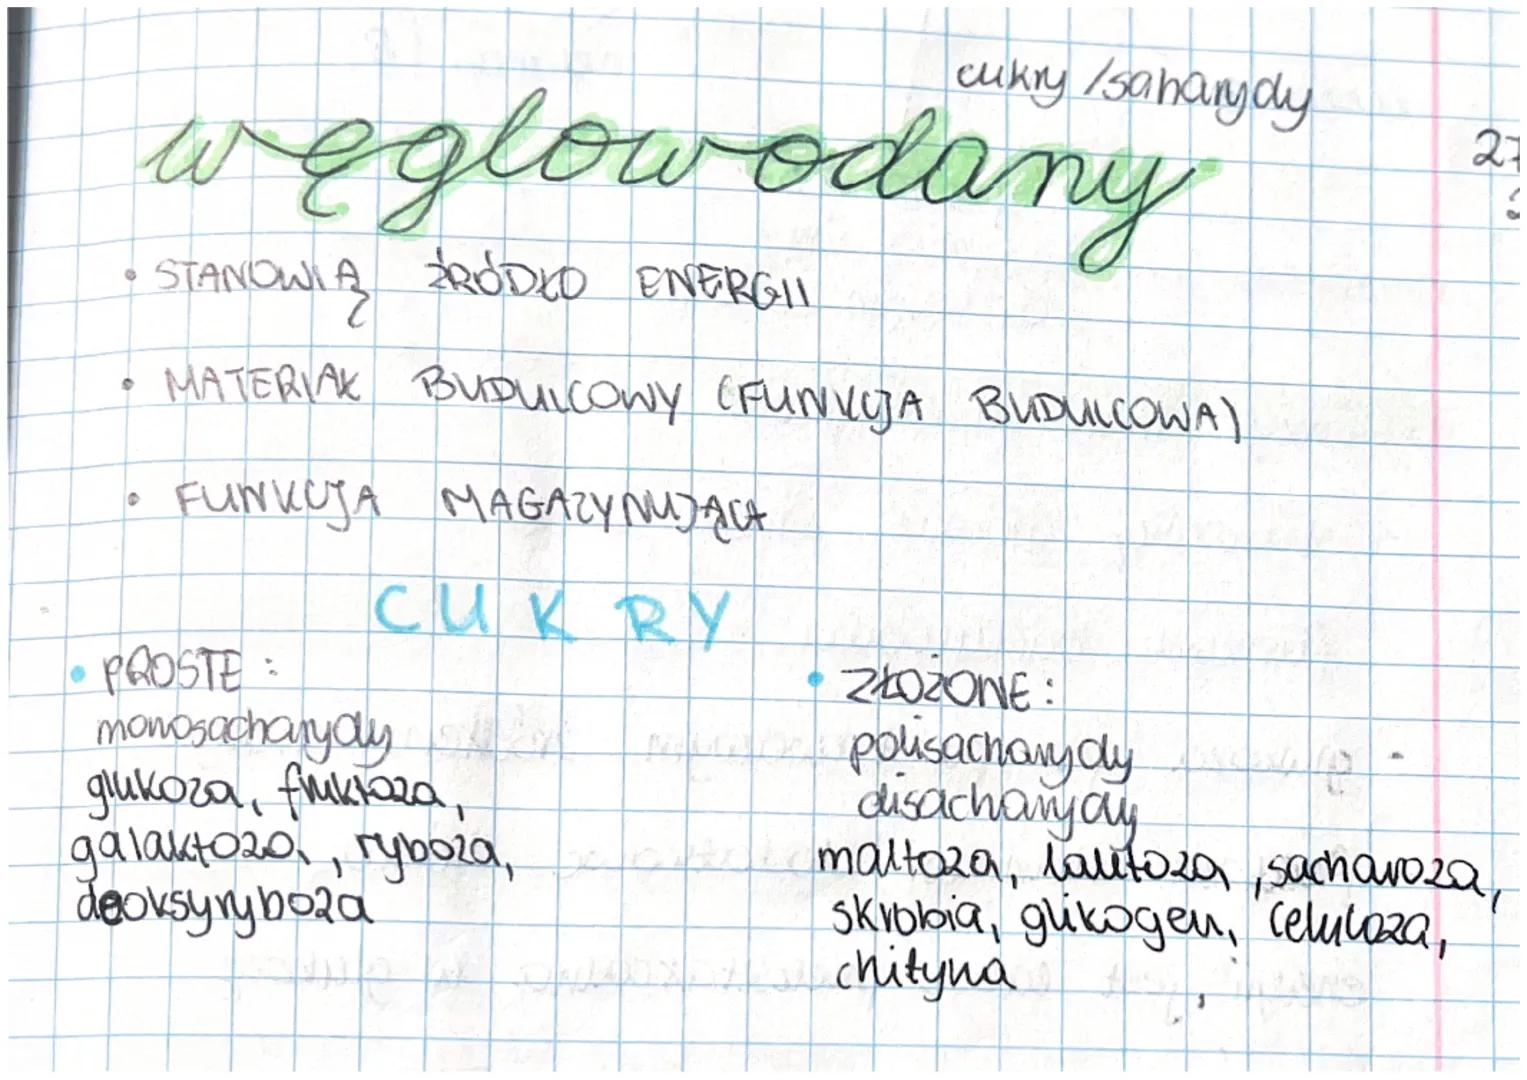 cukry /saharydy
węglowodany
27
• STANOWIĄ ŹRÓDŁO ENERGII
• MATERIAŁ BUDULCOWY (FUNKCJA BUDULCOWA)
• FUNKCJA MAGAZYNUJĄCA
CUKRY
• PROSTE :
monosacharydy
glukoza, fruktoza,
galaktoza, ryboza,
deoksyryboza
• ZŁOŻONE :
polisacharydy
disacharydy
maltoza, laktoza, sacharoza,
skrobia, glikogen, celuloza,
chityna